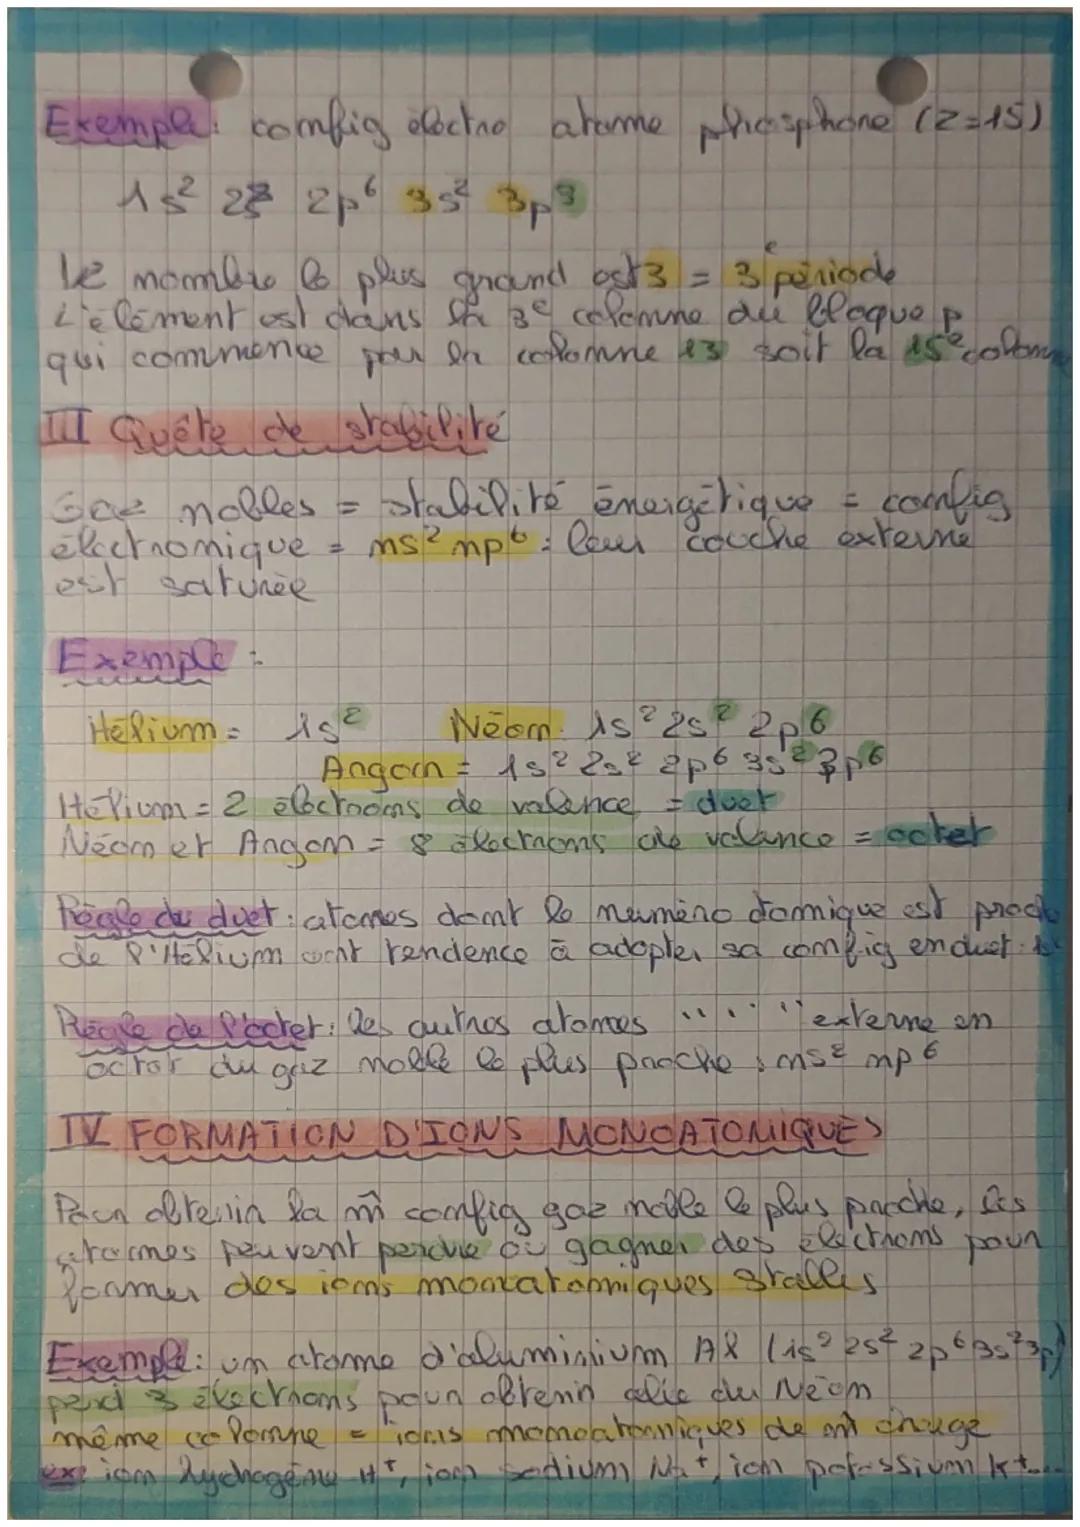 Exemple: config électro atome phosphore (Z=15)
1s² 2s² 2p⁶ 3s² 3p³
Le nombre le plus grand est 3 = 3e période
L'élément est dans la 3e colonne du bloque p
qui commence par la colonne 13 soit la 15e colonne
III Quête de stabilité
Gaz nobles = stabilité énergétique = config
électronique = ns² np⁶ : leur couche externe
est saturée
Exemple :
Hélium = 1s² Néon: 1s² 2s² 2p⁶
Argon = 1s² 2s² 2p⁶ 3s² 3p⁶
Hélium = 2 électrons de valence = duet
Néon et Argon = 8 électrons de valence = octet
Règle du duet: atomes dont le numéro atomique est proche
de l'Hélium ont tendence à adopter sa config en duet: 1s²
Règle de l'octet: les autres atomes " " " " externe en
octet du gaz noble le plus proche : ns² np⁶
IV FORMATION D'IONS MONOATOMIQUES
Pour obtenir la m̂ config gaz noble le plus proche, les
atomes peuvent perdre ou gagner des électrons pour
former des ions monoatomiques stables
Exemple: un atome d'aluminium Al (1s² 2s² 2p⁶ 3s² 3p¹)
perd 3 électrons pour obtenir celle du Néon
même colonne = ions monoatomiques de m̂ charge
ex: ion hydrogène H⁺, ion sodium Na⁺, ion potassium K⁺...